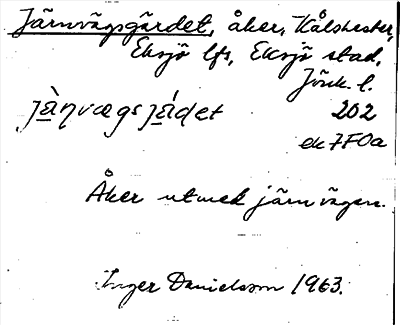 Järnvägsgärdet, åker, Kålshester,
Eksjö lfs, Eksjö stad,
Jönk. l.
202
ek 7F0a
Åker utmed järnvägen.
Inger Danielsson 1963.